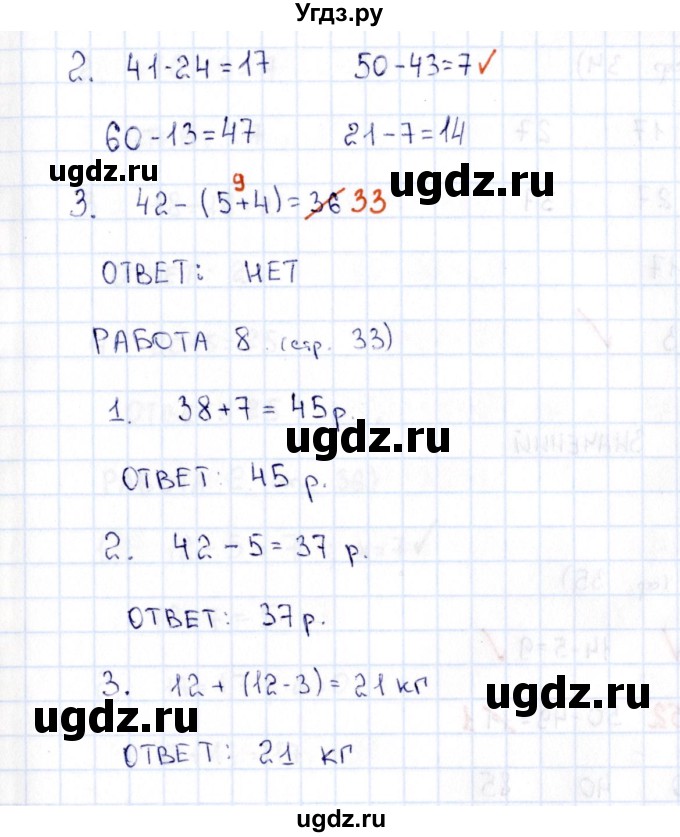 Угдз.ру
2. 41-24=17 50-43=7✓
60-13=47 21-7=14
ugdz.ru ugdz.ru
9
3. 42-(5+4)=36 33
ОТВЕТ: НЕТ
РАБОТА 8 (стр. 33)
1. 38+7=45р.
ugdz.ru
ОТВЕТ: 45 р.
2. 42-5=37 р.
ОТВЕТ: 37 р.
3. 12+(12-3)=21 кг
ugdz.ru ugdz.ru
ОТВЕТ: 21 кг
ugdz.ru